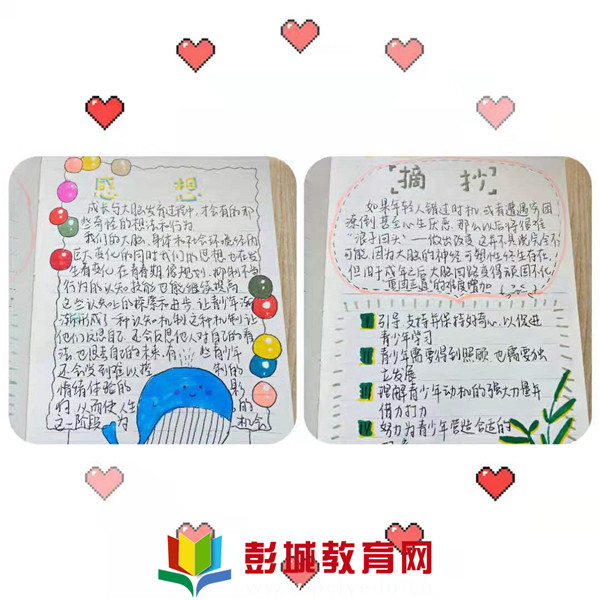 感想
成长与大脑发育过程中,才会有的那
些奇怪的想法和行为
我们的大脑,身体和社会环境经历
巨大变化的同时我们的思想也在发
生着变化,在青春期
行为的认知技能也能继续提高
这些认知上的 进步,让青少年
渐形成了一种认知机制这种机制让
他们反思自己,还会反思他人对自己的看
法,也思考自己的未来,有 些青少年
还会受到难以 制的
情绪体验的 影
从而使人生 的
这一阶段 为 机会
摘抄
如果年轻人错过时机,或者遭遇穷困
潦倒甚至心生厌恶,那么以后将很难
"浪子回头"——做出改变,这并不是说完全不
可能,因为大脑的神经可塑性终生存在,
但旧于成年之后大脑回路变得顽固不化,
重回正道的难度增加
引导,支持并保持好奇心,以促进
青少年学习
青少年需要得到照顾,也需要独
立发展
理解青少年动机的强大力量并
借力打力
努力为青少年营造合适的
彭城教育网